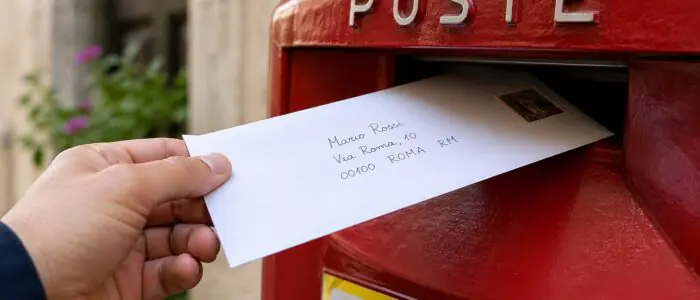 POSTE
Mario Rossi
Via Roma, 10
00100 ROMA RM